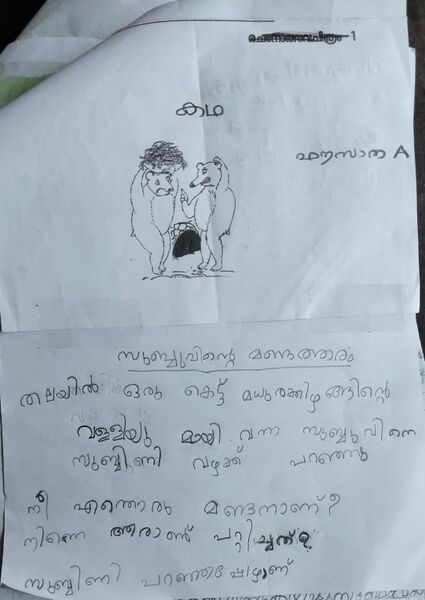 രചനോത്സവചിത്രം - 1
കഥ
A
സുബ്ബുവിന്റെ മണ്ടത്തരം
തലയിൽ ഒരു കെട്ട് മധുരക്കിഴങ്ങിന്റെ
വള്ളിയു മായി വന്ന സുബ്ബുവിനെ
സുബ്ബിണി വഴക്ക് പറഞ്ഞു
നീ എന്തൊരു മണ്ടനാണ്?
നിന്നെ ആരാണ് പറ്റിച്ചത്?
സുബ്ബിണി പറഞ്ഞപ്പോഴാണ്